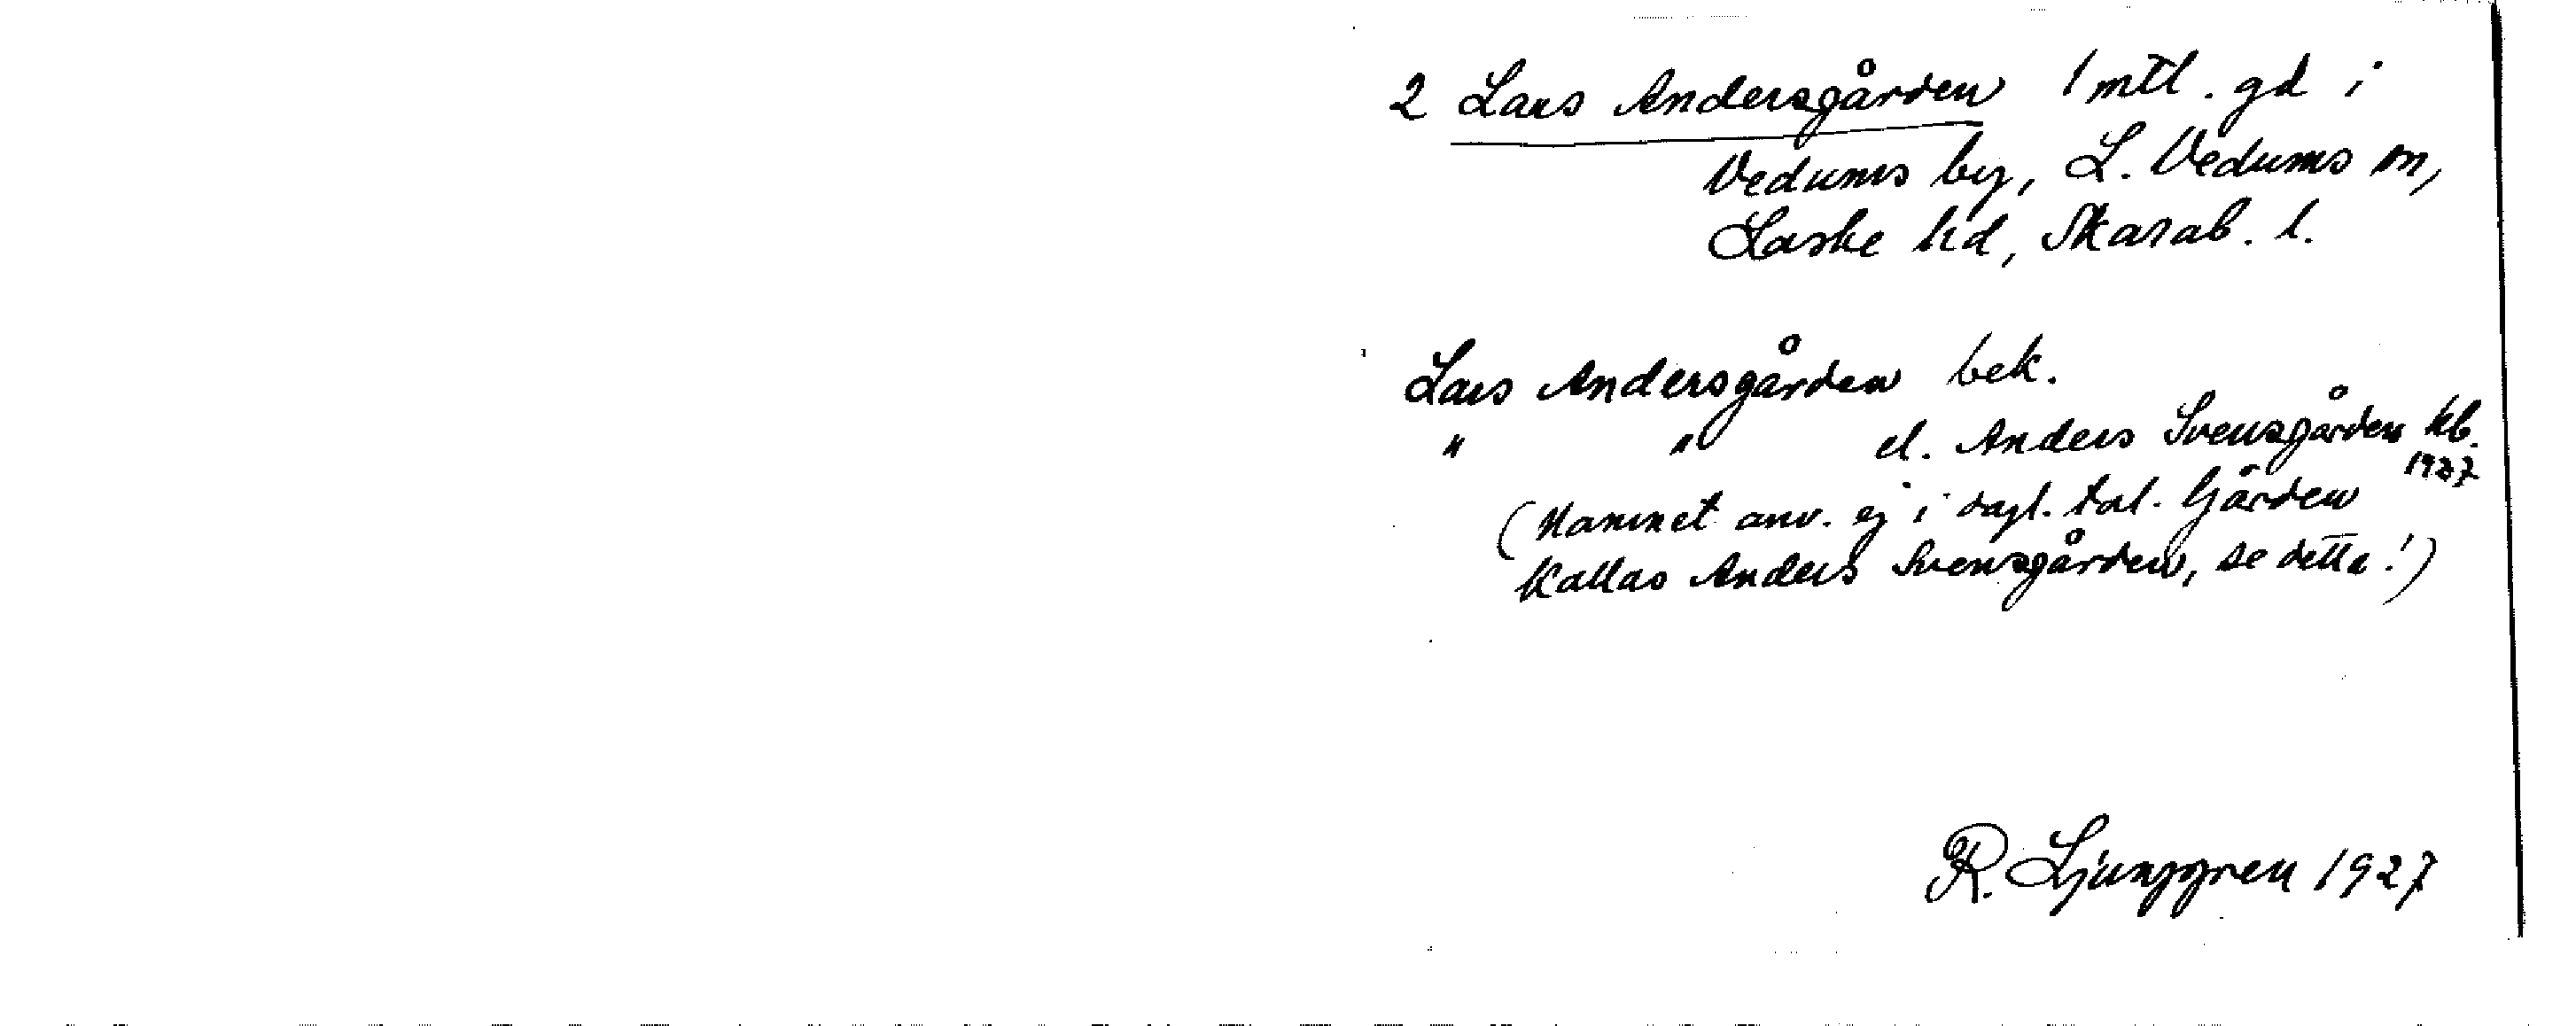 2 Lars Andersgården 1 mtl. gd i
Vedums by, L. Vedums sn,
Laske hd, Skarab. l.
Lars Andersgården bek.
" " el. Anders Svensgården kb.
1927
(Namnet anv. ej i dagl. tal. Gården
kallas Anders Svensgården, se detta!)
R. Ljunggren 1927